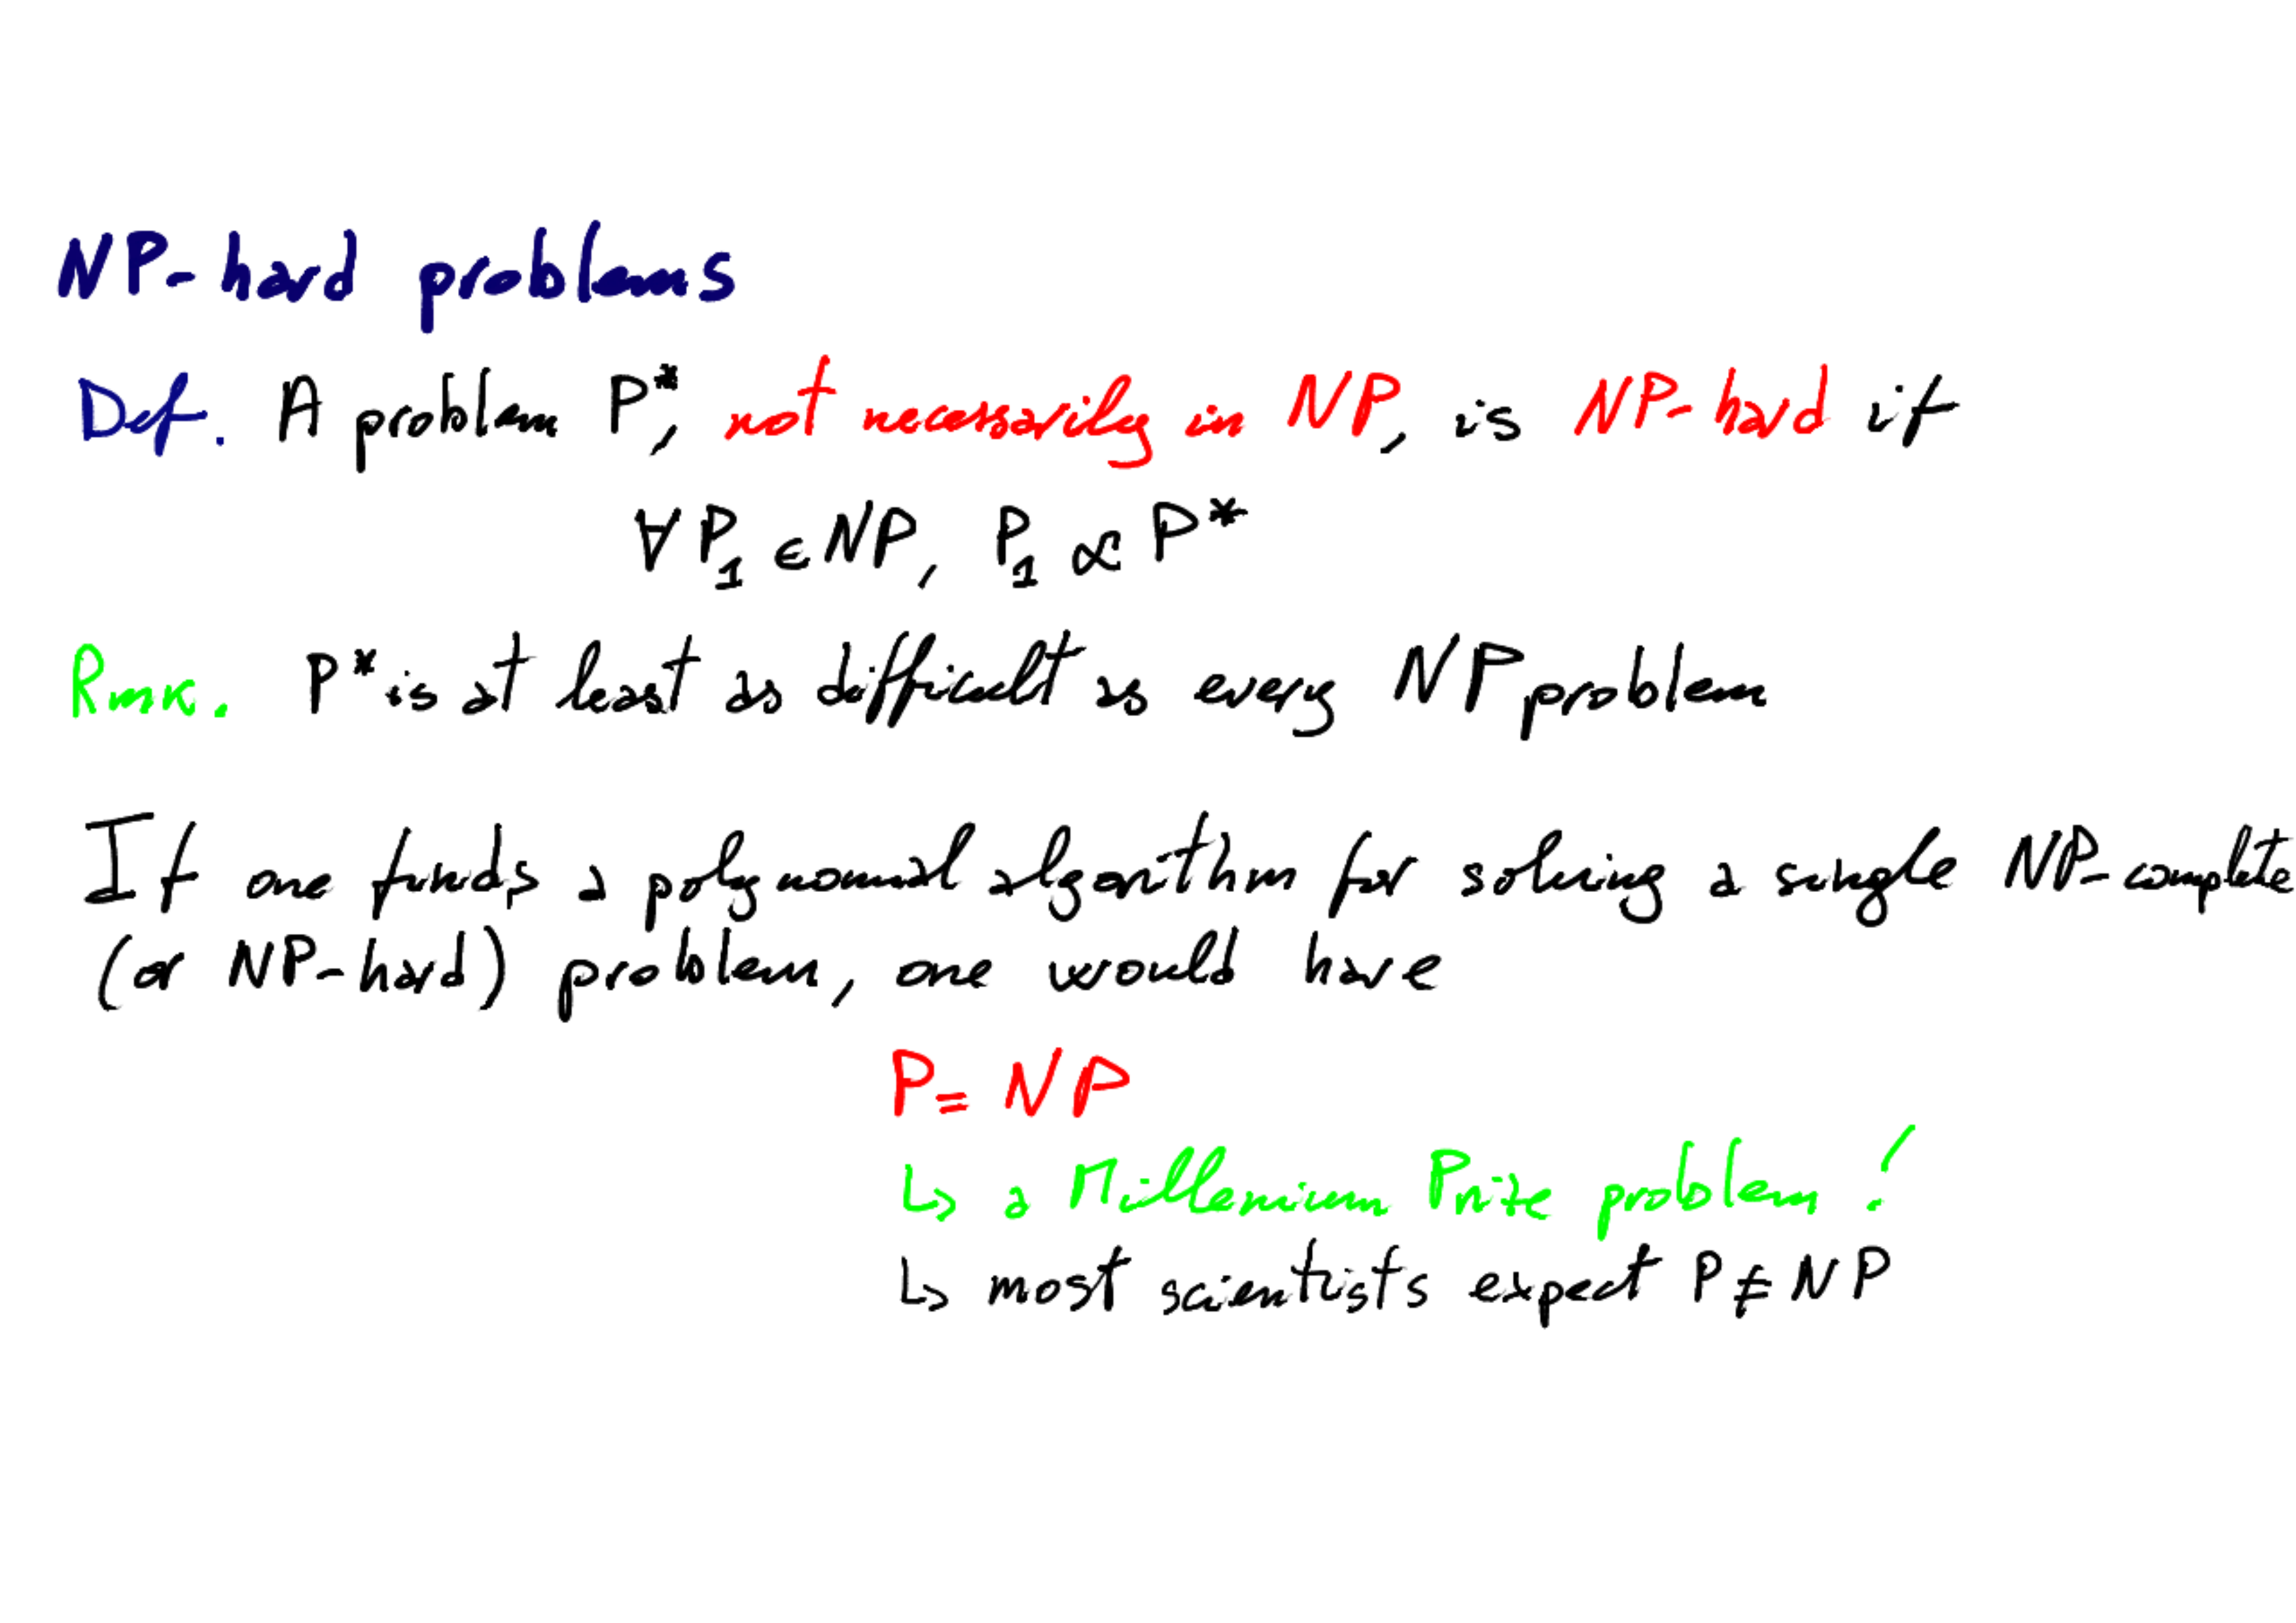 NP-hard problems
Def. A problem P*, not necessarily in NP, is NP-hard if
∀ P₁ ∈ NP, P₁ ∝ P*
Rmk. P* is at least as difficult as every NP problem
If one finds a polynomial algorithm for solving a single NP-complete
(or NP-hard) problem, one would have
P = NP
↳ a Millenium Prize problem!
↳ most scientists expect P ≠ NP